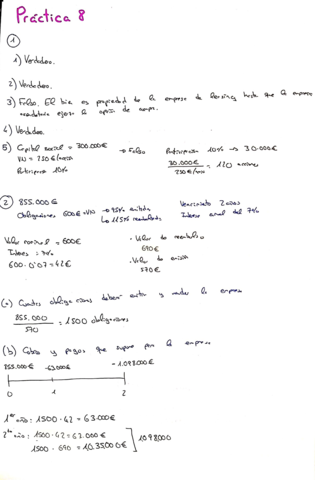 Práctica 8
1
1) Verdadero.
2) Verdadero.
3) Falso. El bien es propiedad de la empresa de leasing hasta que la empresa
arrendataria ejerce la opción de compra.
4) Verdadero.
5) Capital social = 300.000€ → Falso Participación 10% → 30.000€
VN = 250 €/acción 30.000€ / 250 €/acción = 120 acciones
Participación 10%
2 855.000€ Vencimiento 2 años
Obligaciones 600€ = VN → 95% emitida Interés anual del 7%
↳ 115% reembolso
Valor nominal = 600€ · Valor de reembolso
Interés = 7% 690€
600 · 0'07 = 42€ · Valor de emisión
570€
(a) Cuántas obligaciones deben emitir y vender la empresa
855.000 / 570 = 1500 obligaciones
(b) Cobros y pagos que supone para la empresa
855.000€ -63.000€ -1.098.000€
0 1 2
1er año: 1500 · 42 = 63.000€
2do año: 1500 · 42 = 63.000€
1500 · 690 = 10.35.000€ 1098.000